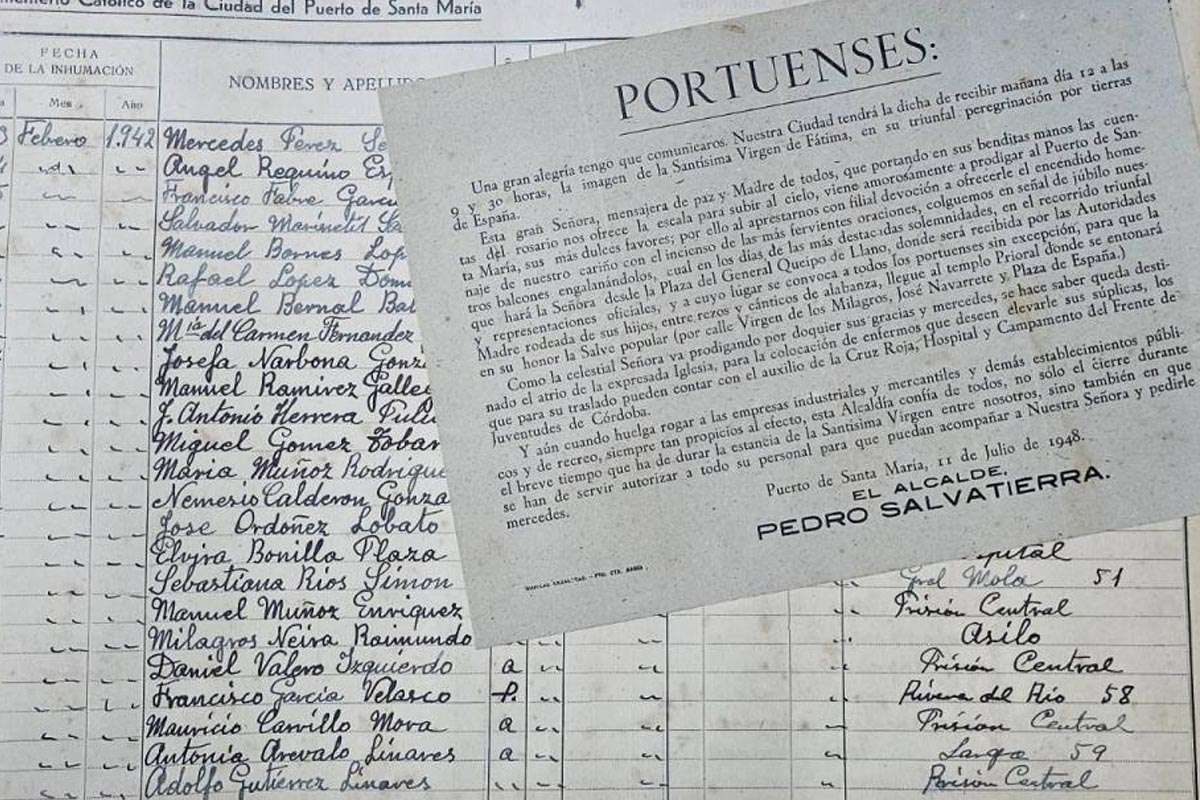 Católico de la Ciudad del Puerto de Santa María
FECHA
DE LA INHUMACIÓN
NOMBRES Y
Mes Año
Febrero 1.942 Mercedes Perez
Angel Requino
Francisco Fabre
Salvador
Manuel Bornes
Rafael Lopez
Manuel Bernal
Mía del Carmen Fernandez
Josefa Narbona
Manuel Ramirez
J. Antonio Herrera
Miguel Gomez Tobar
Maria Muñoz
Nemesio Calderon
Jose Ordoñez Lobato
Elvira Bonilla Plaza
Sebastiana Rios Simon Gral Mola 51
Manuel Muñoz Enriquez Prisión Central
Milagros Neira Raimundo Asilo
Daniel Valero Izquierdo a Prisión Central
Francisco García Velasco P. Rivera del Rio 58
Mauricio Carrillo Mora a Prision Central
Antonia Arevalo Linares a Larga 59
Adolfo Gutierrez Linares Prisión Central
PORTUENSES:
Una gran alegría tengo que comunicaros. Nuestra Ciudad tendrá la dicha de recibir mañana día 12 a las
9 y 30 horas, la imagen de la Santísima Virgen de Fátima, en su triunfal peregrinación por tierras
de España.
Esta gran Señora, mensajera de paz y Madre de todos, que portando en sus benditas manos las cuen-
tas del rosario nos ofrece la escala para subir al cielo, viene amorosamente a prodigar al Puerto de San-
ta María, sus más dulces favores; por ello al aprestarnos con filial devoción a ofrecerle el encendido home-
naje de nuestro cariño con el incienso de las más fervientes oraciones, colguemos en señal de júbilo nues-
tros balcones engalanándolos, cual en los días de las más destacadas solemnidades, en el recorrido triunfal
que hará la Señora desde la Plaza del General Queipo de Llano, donde será recibida por las Autoridades
y representaciones oficiales, y a cuyo lugar se convoca a todos los portuenses sin excepción; para que la
Madre rodeada de sus hijos, entre rezos y cánticos de alabanza, llegue al templo Prioral donde se entonará
en su honor la Salve popular (por calle Virgen de los Milagros, José Navarrete y Plaza de España.)
Como la celestial Señora va prodigando por doquier sus gracias y mercedes, se hace saber queda desti-
nado el atrio de la expresada Iglesia, para la colocación de enfermos que deseen elevarle sus súplicas, los
que para su traslado pueden contar con el auxilio de la Cruz Roja, Hospital y Campamento del Frente de
Juventudes de Córdoba.
Y aún cuando huelga rogar a las empresas industriales y mercantiles y demás establecimientos públi-
cos y de recreo, siempre tan propicios al efecto, esta Alcaldía confía de todos, no sólo el cierre durante
el breve tiempo que ha de durar la estancia de la Santísima Virgen entre nosotros, sino también en que
se han de servir autorizar a todo su personal para que puedan acompañar a Nuestra Señora y pedirle
mercedes.
Puerto de Santa María, 11 de Julio de 1948.
EL ALCALDE,
PEDRO SALVATIERRA.